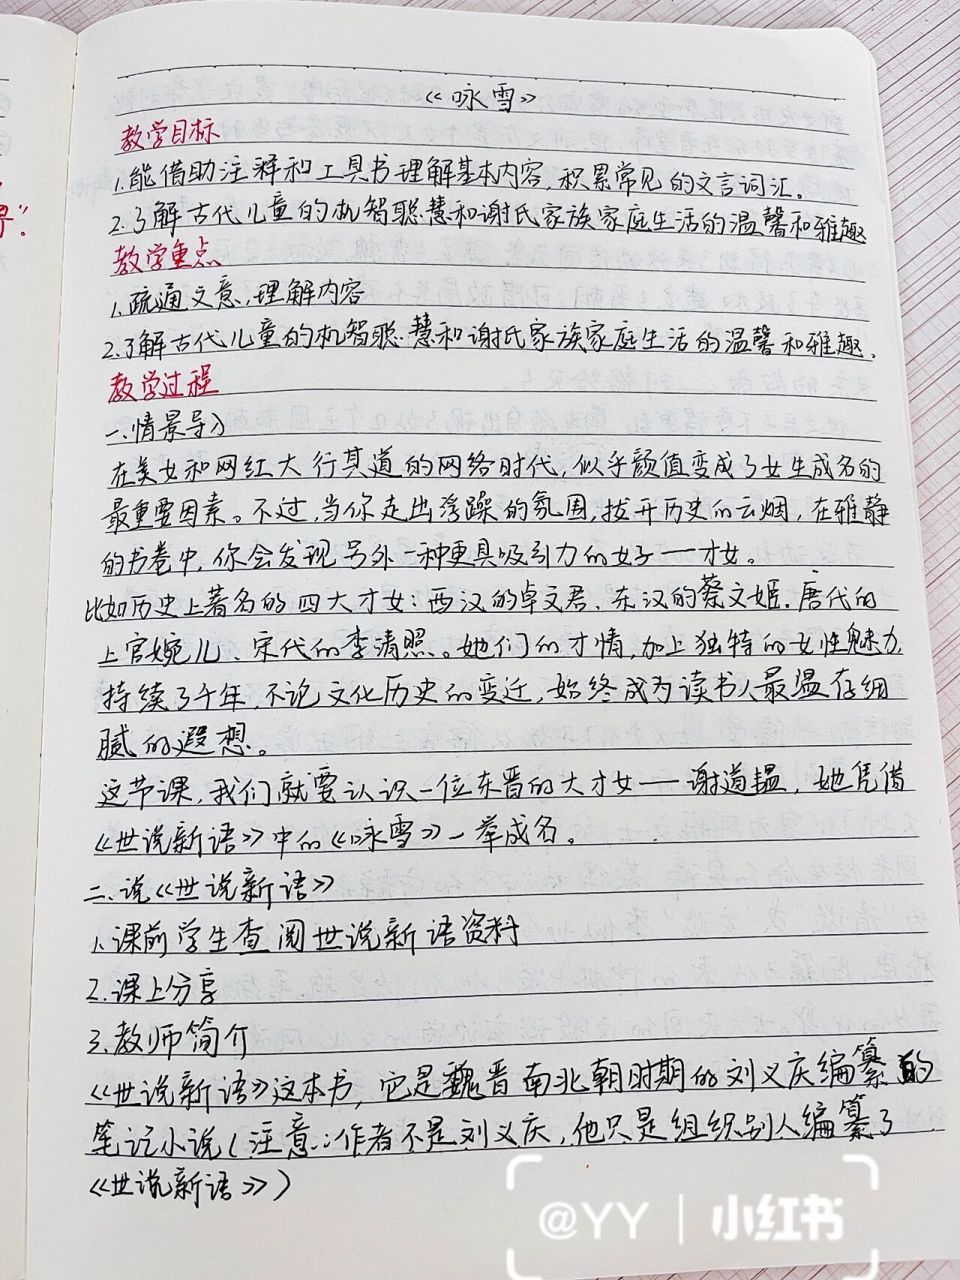 《咏雪》
教学目标
1.能借助注释和工具书理解基本内容,积累常见的文言词汇。
2.了解古代儿童的机智聪慧和谢氏家族家庭生活的温馨和雅趣
教学重点
1.疏通文意,理解内容
2.了解古代儿童的机智聪慧和谢氏家族家庭生活的温馨和雅趣.
教学过程
一.情景导入
在美女和网红大行其道的网络时代,似乎颜值变成了女生成名的
最重要因素。不过,当你走出浮躁的氛围,拨开历史的云烟,在雅静
的书卷中,你会发现另外一种更具吸引力的女子——才女。
比如历史上著名的四大才女:西汉的卓文君、东汉的蔡文姬.唐代的
上官婉儿、宋代的李清照。她们的才情,加上独特的女性魅力,
持续了千年,不论文化历史的变迁,始终成为读书人最温存细
腻的遐想。
这节课,我们就要认识一位东晋的大才女——谢道韫,她凭借
《世说新语》中的《咏雪》一举成名。
二.说《世说新语》
1.课前学生查阅世说新语资料
2.课上分享
3.教师简介
《世说新语》这本书,它是魏晋南北朝时期的刘义庆编纂的
笔记小说(注意:作者不是刘义庆,他只是组织别人编纂了
《世说新语》)
@YY | 小红书